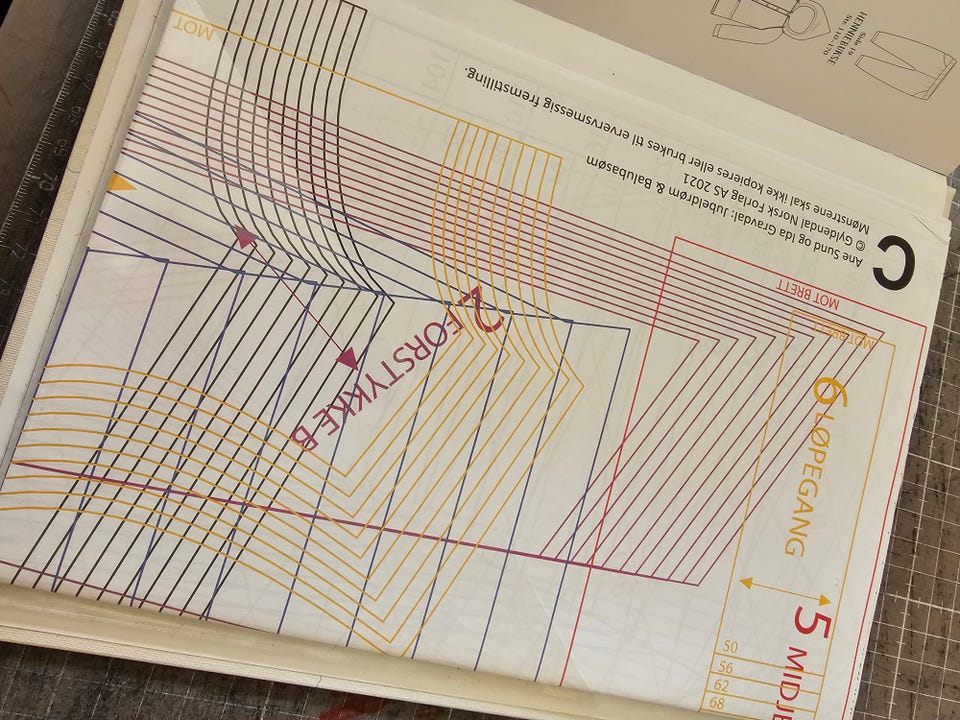 HENNIEBUKSE
Side 19
Str. 110–170
C
Ane Sund og Ida Gravdal: Jubeldrøm & Balubasøm
© Gyldendal Norsk Forlag AS 2021
Mønstrene skal ikke kopieres eller brukes til ervervsmessig fremstilling.
MOT
MOT BRETT
MOT BRETT
2 FORSTYKKE B
6 LØPEGANG
5 MIDJE
50
56
62
68
69
70